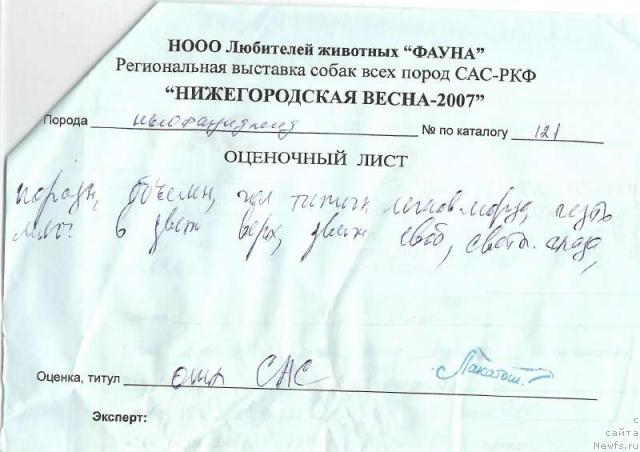 НООО Любителей животных “ФАУНА”
Региональная выставка собак всех пород САС-РКФ
“НИЖЕГОРОДСКАЯ ВЕСНА-2007”
Порода ньюфаундленд № по каталогу 121
ОЦЕНОЧНЫЙ ЛИСТ
породн, объемн, гол типичн, морда,
в движ верх, движ своб, светл. глаза,
Оценка, титул отл САС Лакатош
Эксперт:
с
сайта
Newfs.ru